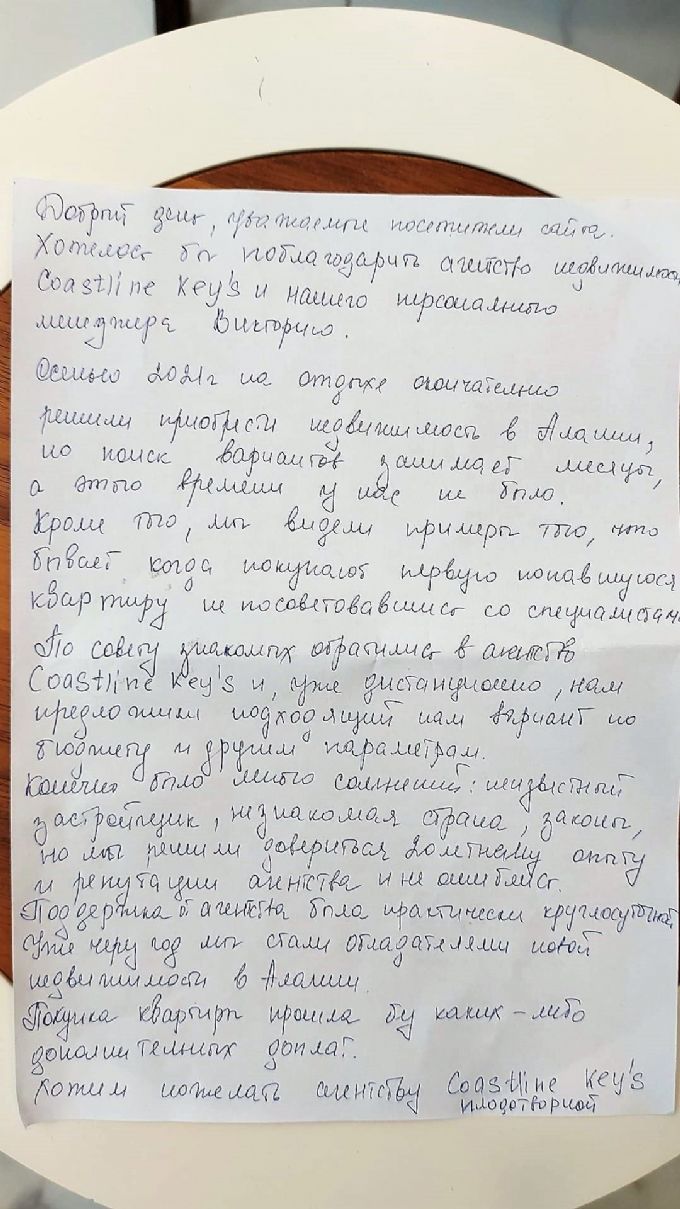 Добрый день, уважаемые посетители сайта.
Хотелось бы поблагодарить агентство недвижимости
Coastline Key's и нашего персонального
менеджера Викторию.
Осенью 2021г на отдыхе окончательно
решили приобрести недвижимость в Алании,
но поиск вариантов занимает месяцы,
а этого времени у нас не было.
Кроме того, мы видели примеры того, что
бывает когда покупают первую попавшуюся
квартиру не посоветовавшись со специалистами
По совету знакомых обратились в агентство
Coastline Key's и, уже дистанционно, нам
предложили подходящий нам вариант по
бюджету и другим параметрам.
Конечно было много сомнений: неизвестный
застройщик, незнакомая страна, законы,
но мы решили довериться 20летнему опыту
и репутации агентства и не ошиблись.
Поддержка агентства была практически круглосуточной
Уже через год мы стали обладателями новой
недвижимости в Алании.
Покупка квартиры прошла без каких-либо
дополнительных доплат.
Хотим пожелать агентству Coastline Key's
плодотворной